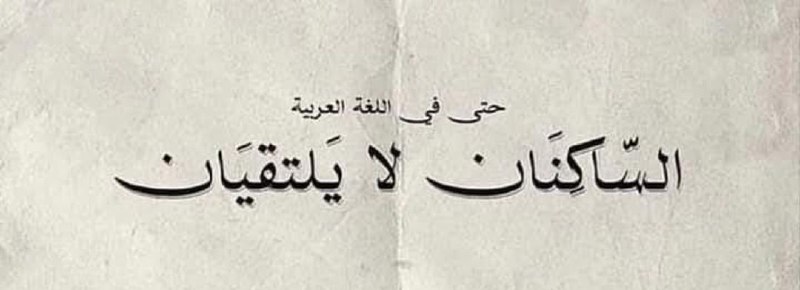 حتى في اللغة العربية
السّاكِنَان لا يَلتقيَان